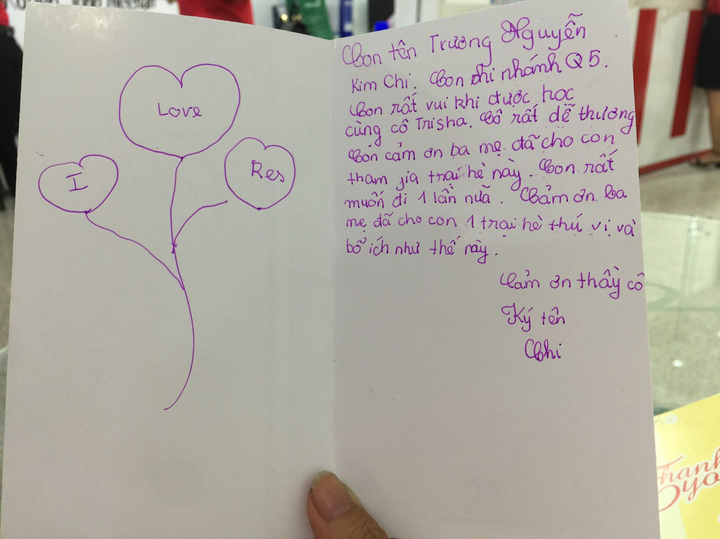 Love
I
Res
Con tên Trương Nguyễn
Kim Chi. Con chi nhánh Q5.
Con rất vui khi được học
cùng cô Trisha. Cô rất dễ thương
Con cảm ơn ba mẹ đã cho con
tham gia trại hè này. Con rất
muốn đi 1 lần nữa. Cảm ơn ba
mẹ đã cho con 1 trại hè thú vị và
bổ ích như thế này.
Cảm ơn thầy cô
Ký tên
Chi
Thank